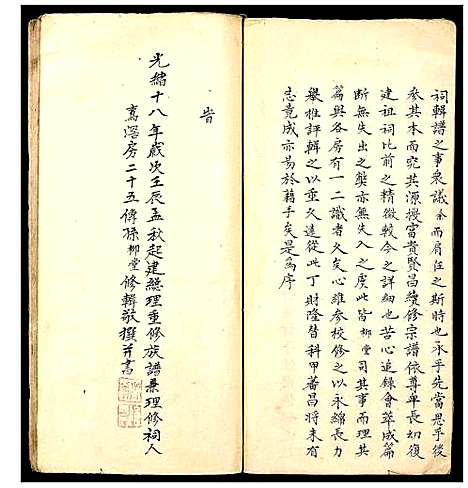 祠輯譜之事衆議余而肩任之斯時也承乎先當思乎後
參其本而究其源援富貴賢昌續修宗譜依尊卑長幼復
建祖祠比前之精微較令之詳細也苦心追録會萃成篇
斷無失出之弊亦無失入之虞此皆柳堂司其事而理其
篇與各房有一二識者久矣心維參校修之以永綿長力
舉推評輯之以垂久遠從此丁財隆替科甲蕃昌將來有
志竟成亦易於藉手矣是為序
旹
光緒十八年歲次壬辰孟秋起建總理重修族譜兼理修祠人
房二十五傳孫柳堂修輯敬撰并書